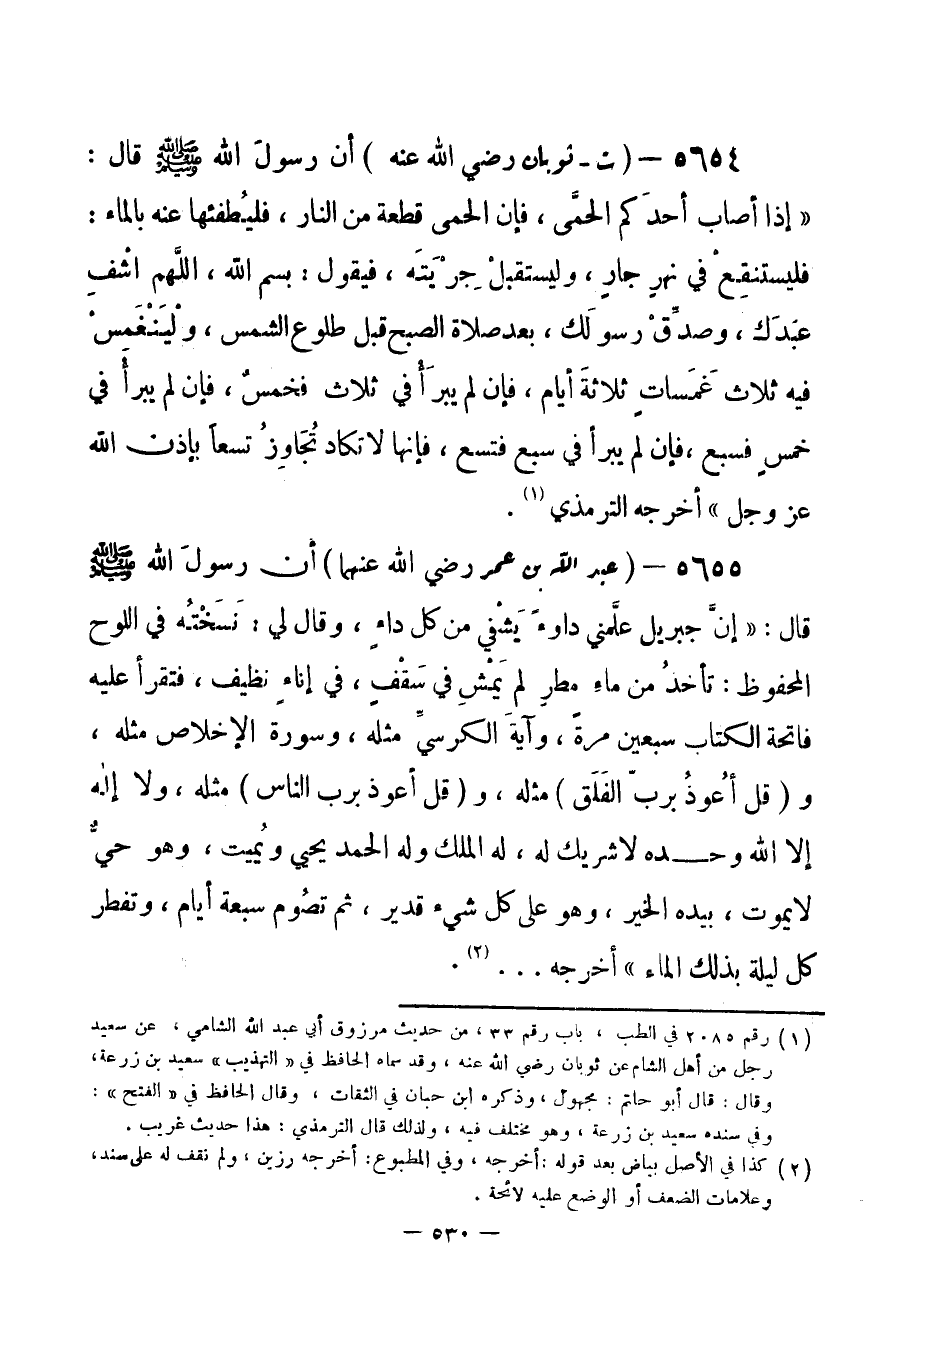 ٥٦٥٤ – ( ت - ثوبان رضي الله عنه ) أن رسولَ الله ﷺ قال :
« إذا أصاب أحدَكم الحمَّى ، فإن الحمى قطعة من النار ، فليُطفئها عنه بالماء :
فليستنقِعْ في نهرٍ جارٍ ، وليستقبلْ جِرْيَتَه ، فيقول : بسم الله ، اللَّهم اشْفِ
عبَدَك ، وصدِّقْ رسولَك ، بعد صلاة الصبح قبل طلوع الشمس ، ولْيَنْغَمِسْ
فيه ثلاث غَمَسات ٍ ثلاثةَ أيام ، فإن لم يبرَأْ في ثلاث فخمسٌ ، فإن لم يبرأْ في
خمسٍ فسبع ، فإن لم يبرأ في سبع فتسع ، فإنها لا تكاد تُجَاوِزُ تسعاً بإذن الله
عز وجل » أخرجه الترمذي (١) .
٥٦٥٥ – ( عبد الله بن عمر رضي الله عنهما ) أن رسولَ الله ﷺ
قال : « إنَّ جبريل علَّمني داوءً يَشْفي من كل داءٍ ، وقال لي : نَسَخْتُه في اللوح
المحفوظ : تأخذُ من ماءِ مطرٍ لم يَمْشِ في سَقْفٍ ، في إناءٍ نظيف ، فتقرأ عليه
فاتحة الكتاب سبعين مرةً ، وآيةَ الكرسيِّ مثله ، وسورة الإخلاص مثله ،
و ( قل أعُوذُ بربّ الفَلَق ) مثله ، و ( قل أعوذ برب الناس ) مثله ، ولا إله
إلا الله وحـــده لا شريك له ، له الملك وله الحمد يحيي ويُميت ، وهو حيٌّ
لا يموت ، بيده الخير ، وهو على كل شيء قدير ، ثم تصُوم سبعة أيام ، وتفطر
كل ليلة بذلك الماء » أخرجه . . . (٢) .
(١) رقم ٢٠٨٥ في الطب ، باب رقم ٣٣ ، من حديث مرزوق أبي عبد الله الشامي ، عن سعيد
رجل من أهل الشام عن ثوبان رضي الله عنه ، وقد سماه الحافظ في « التهذيب » سعيد بن زرعة ،
وقال : قال أبو حاتم : مجهول ، وذكره ابن حبان في الثقات ، وقال الحافظ في « الفتح » :
وفي سنده سعيد بن زرعة ، وهو مختلف فيه ، ولذلك قال الترمذي : هذا حديث غريب .
(٢) كذا في الأصل بياض بعد قوله : أخرجه ، وفي المطبوع : أخرجه رزين ، ولم نقف له على سند ،
وعلامات الضعف أو الوضع عليه لائحة .
– ٥٣٠ –